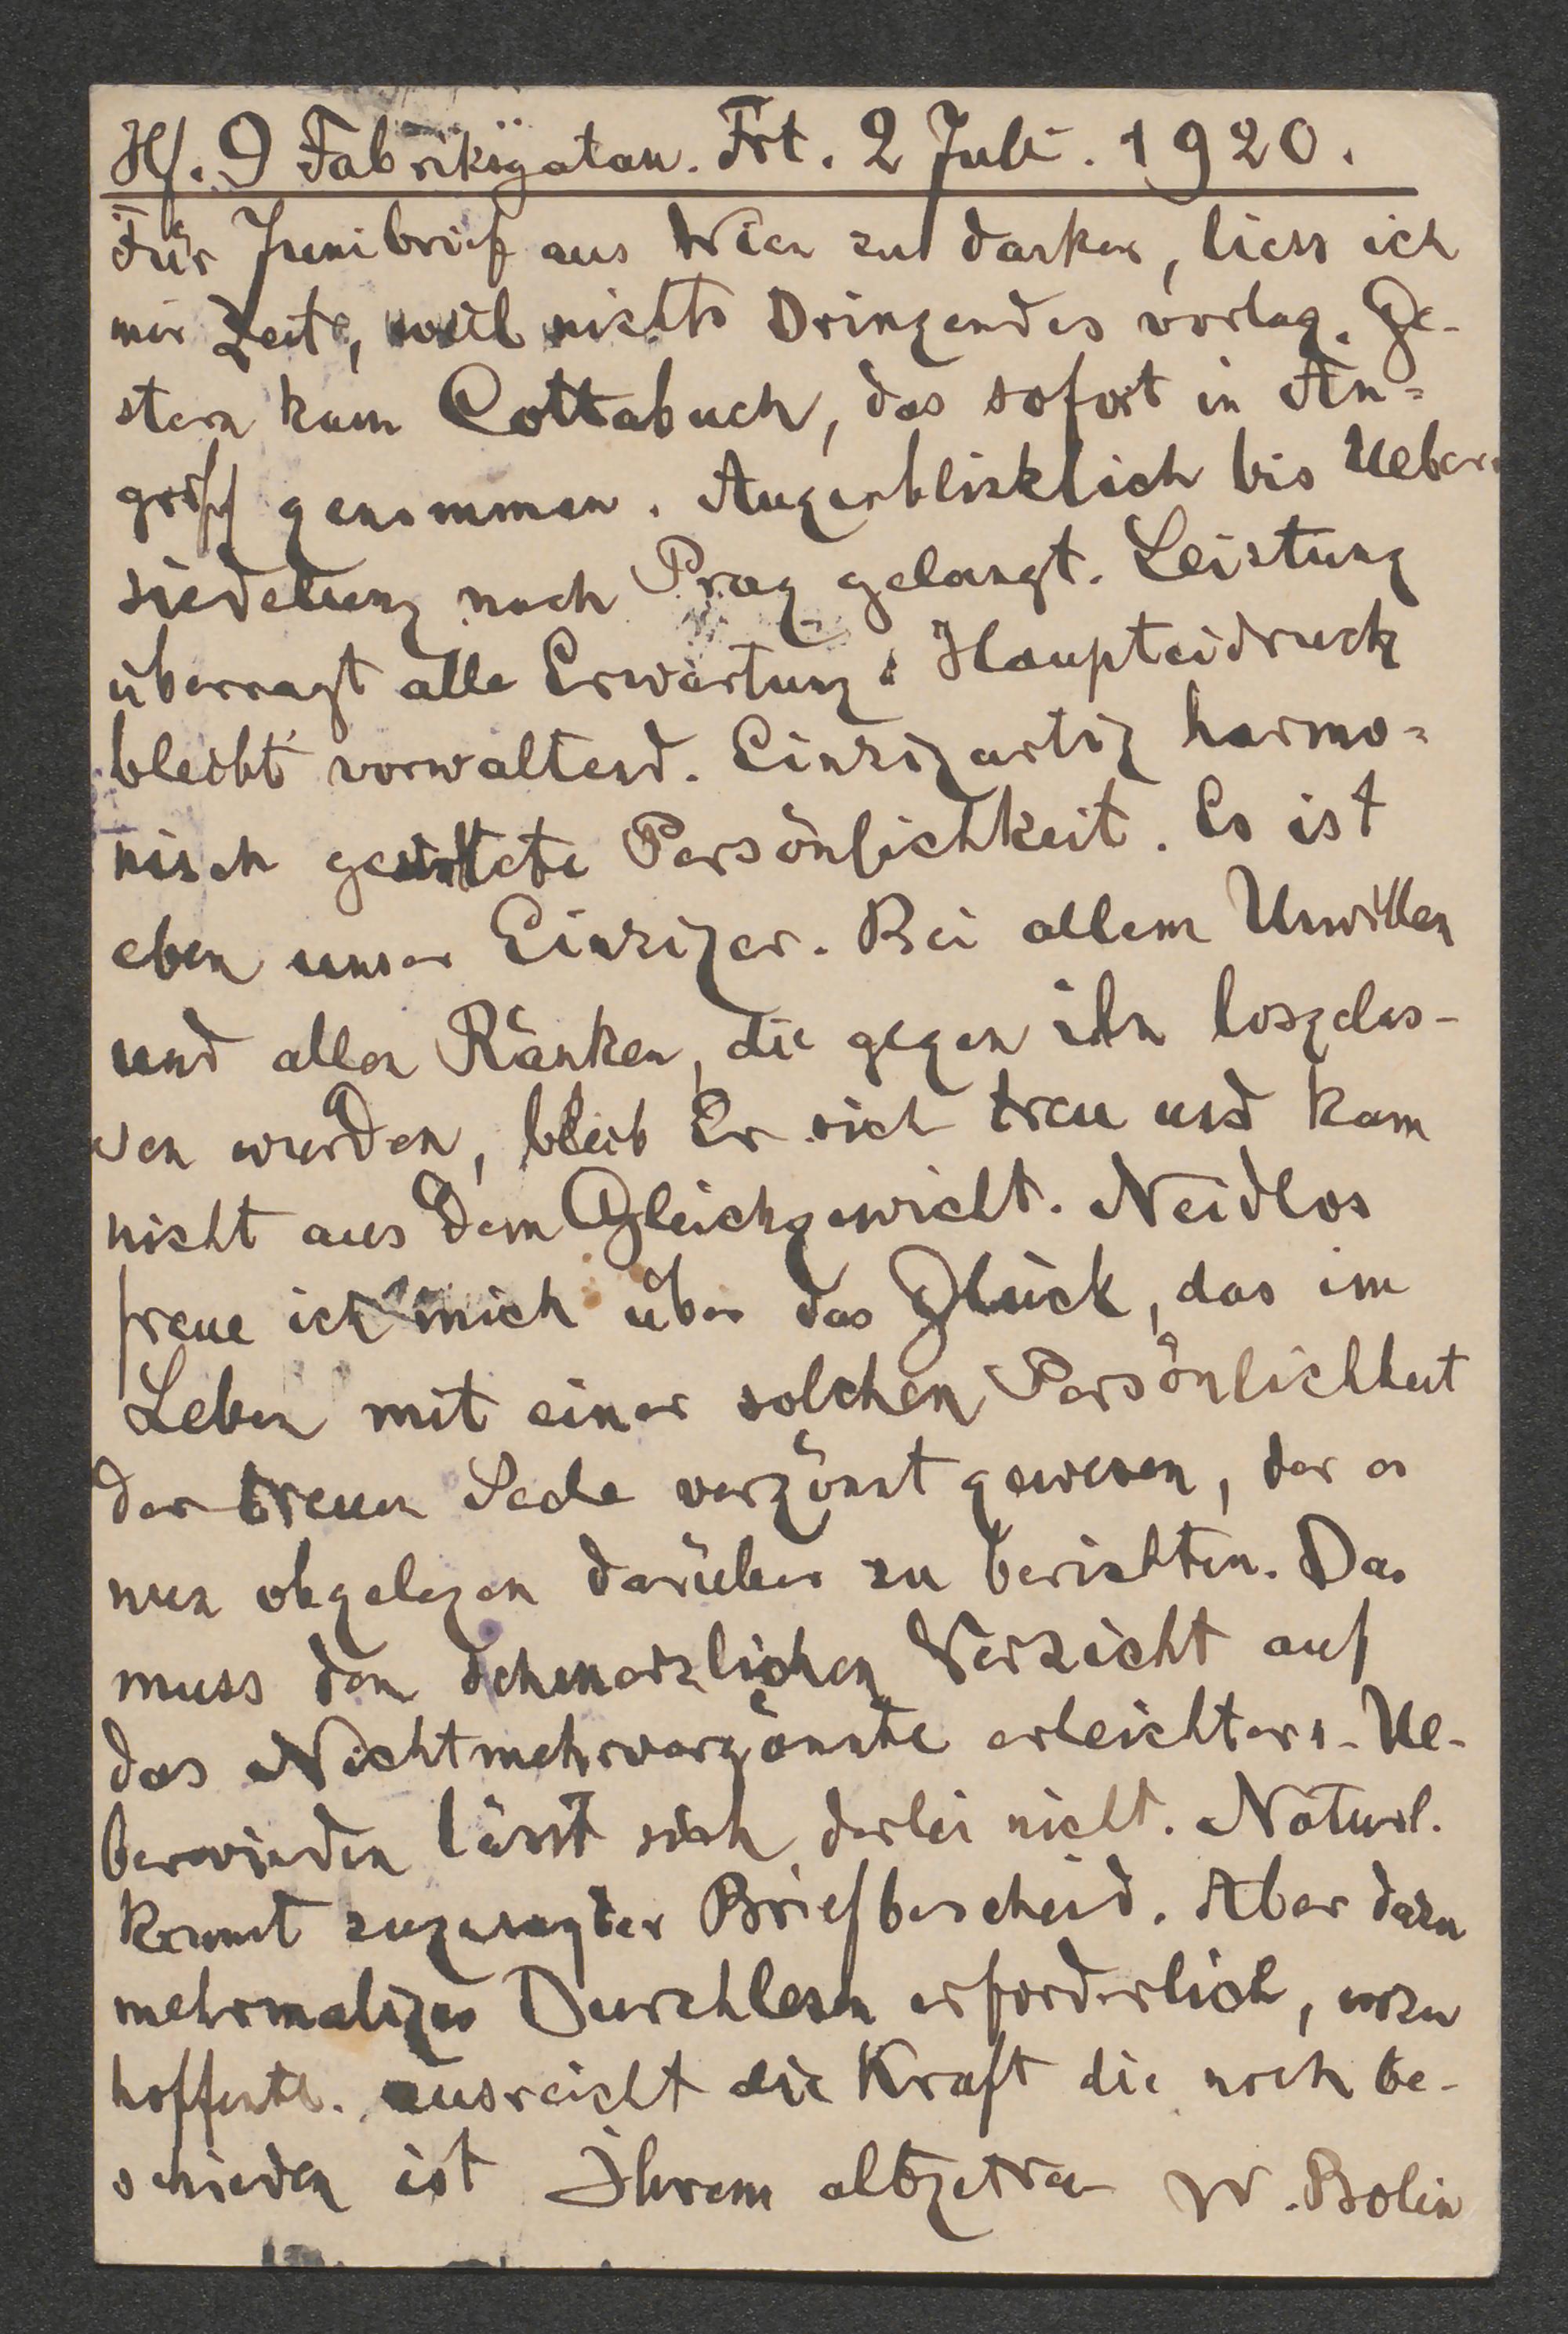 Hf. 9 Fabriksgatan. Frt. 2 Juli. 1920.
Für Junibrief aus Wien zu danken, liess ich
mir Zeit, weil nichts Dringendes vorlag. Ge-
stern kam Cottabuch, das sofort in An=
griff genommen. Augenblicklich bis Ueber-
siedelung nach Prag gelangt. Leistung
überragt alle Erwartung. Haupteidruck
bleibt vorwaltend. Einzigartig harmo=
nisch gestaltete Persönlichkeit. Es ist
eben unser Einziger. Bei allem Unwillen
und allen Ränken, die gegen ihn losgelas-
sen wurden, blieb Er sich treu und kam
nicht aus dem Gleichgewicht. Neidlos
freue ich mich über das Glück, das im
Leben mit einer solchen Persönlichkeit
der treuen Seele vergönnt gewesen, der es
nun obgelegen darüber zu berichten. Das
muss den schmerzlichen Verzicht auf
das Nichtmehrvergönnte erleichtern. Ue-
berwinden lässt sich derlei nicht. Naturl.
kommt zugesagter Briefbescheid. Aber dazu
mehrmaliges Durchlesen erforderlich, wozu
hoffentl. ausreicht die Kraft die noch be-
schieden ist Ihrem altgetreuen W. Bolin